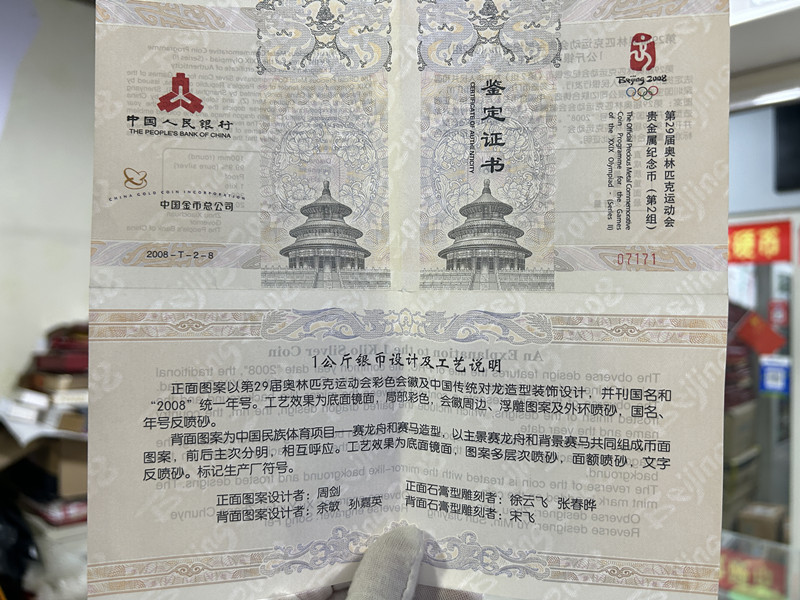 中国人民银行
THE PEOPLE'S BANK OF CHINA
CHINA GOLD COIN INCORPORATION
中国金币总公司
2008-T-2-8
鉴定证书
CERTIFICATE OF AUTHENTICITY
Beijing 2008
第29届奥林匹克运动会
贵金属纪念币（第2组）
The Official Precious Metal Commemorative
Coin Programme for the Games
of the XXIX Olympiad - (Series II)
07171
1公斤银币设计及工艺说明
正面图案以第29届奥林匹克运动会彩色会徽及中国传统对龙造型装饰设计，并刊国名和
“2008”统一年号。工艺效果为底面镜面，局部彩色，会徽周边、浮雕图案及外环喷砂，国名、
年号反喷砂。
背面图案为中国民族体育项目——赛龙舟和赛马造型，以主景赛龙舟和背景赛马共同组成币面
图案，前后主次分明，相互呼应。工艺效果为底面镜面，图案多层次喷砂，面额喷砂，文字
反喷砂。标记生产厂符号。
正面图案设计者：周剑
正面石膏型雕刻者：徐云飞 张春晔
背面图案设计者：余敏 孙嘉英
背面石膏型雕刻者：宋飞
硬币